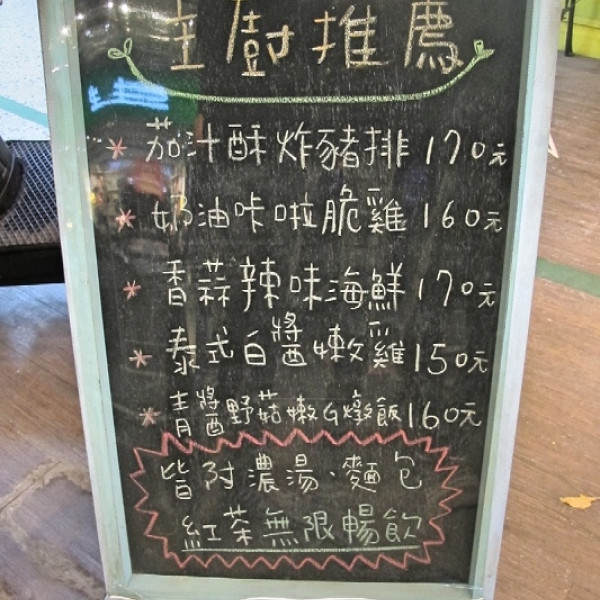 主廚推薦
* 茄汁酥炸豬排170元
* 奶油咔啦脆雞160元
* 香蒜辣味海鮮170元
* 泰式白醬嫩雞150元
* 青醬野菇嫩G燉飯160元
皆附濃湯、麵包
紅茶無限暢飲